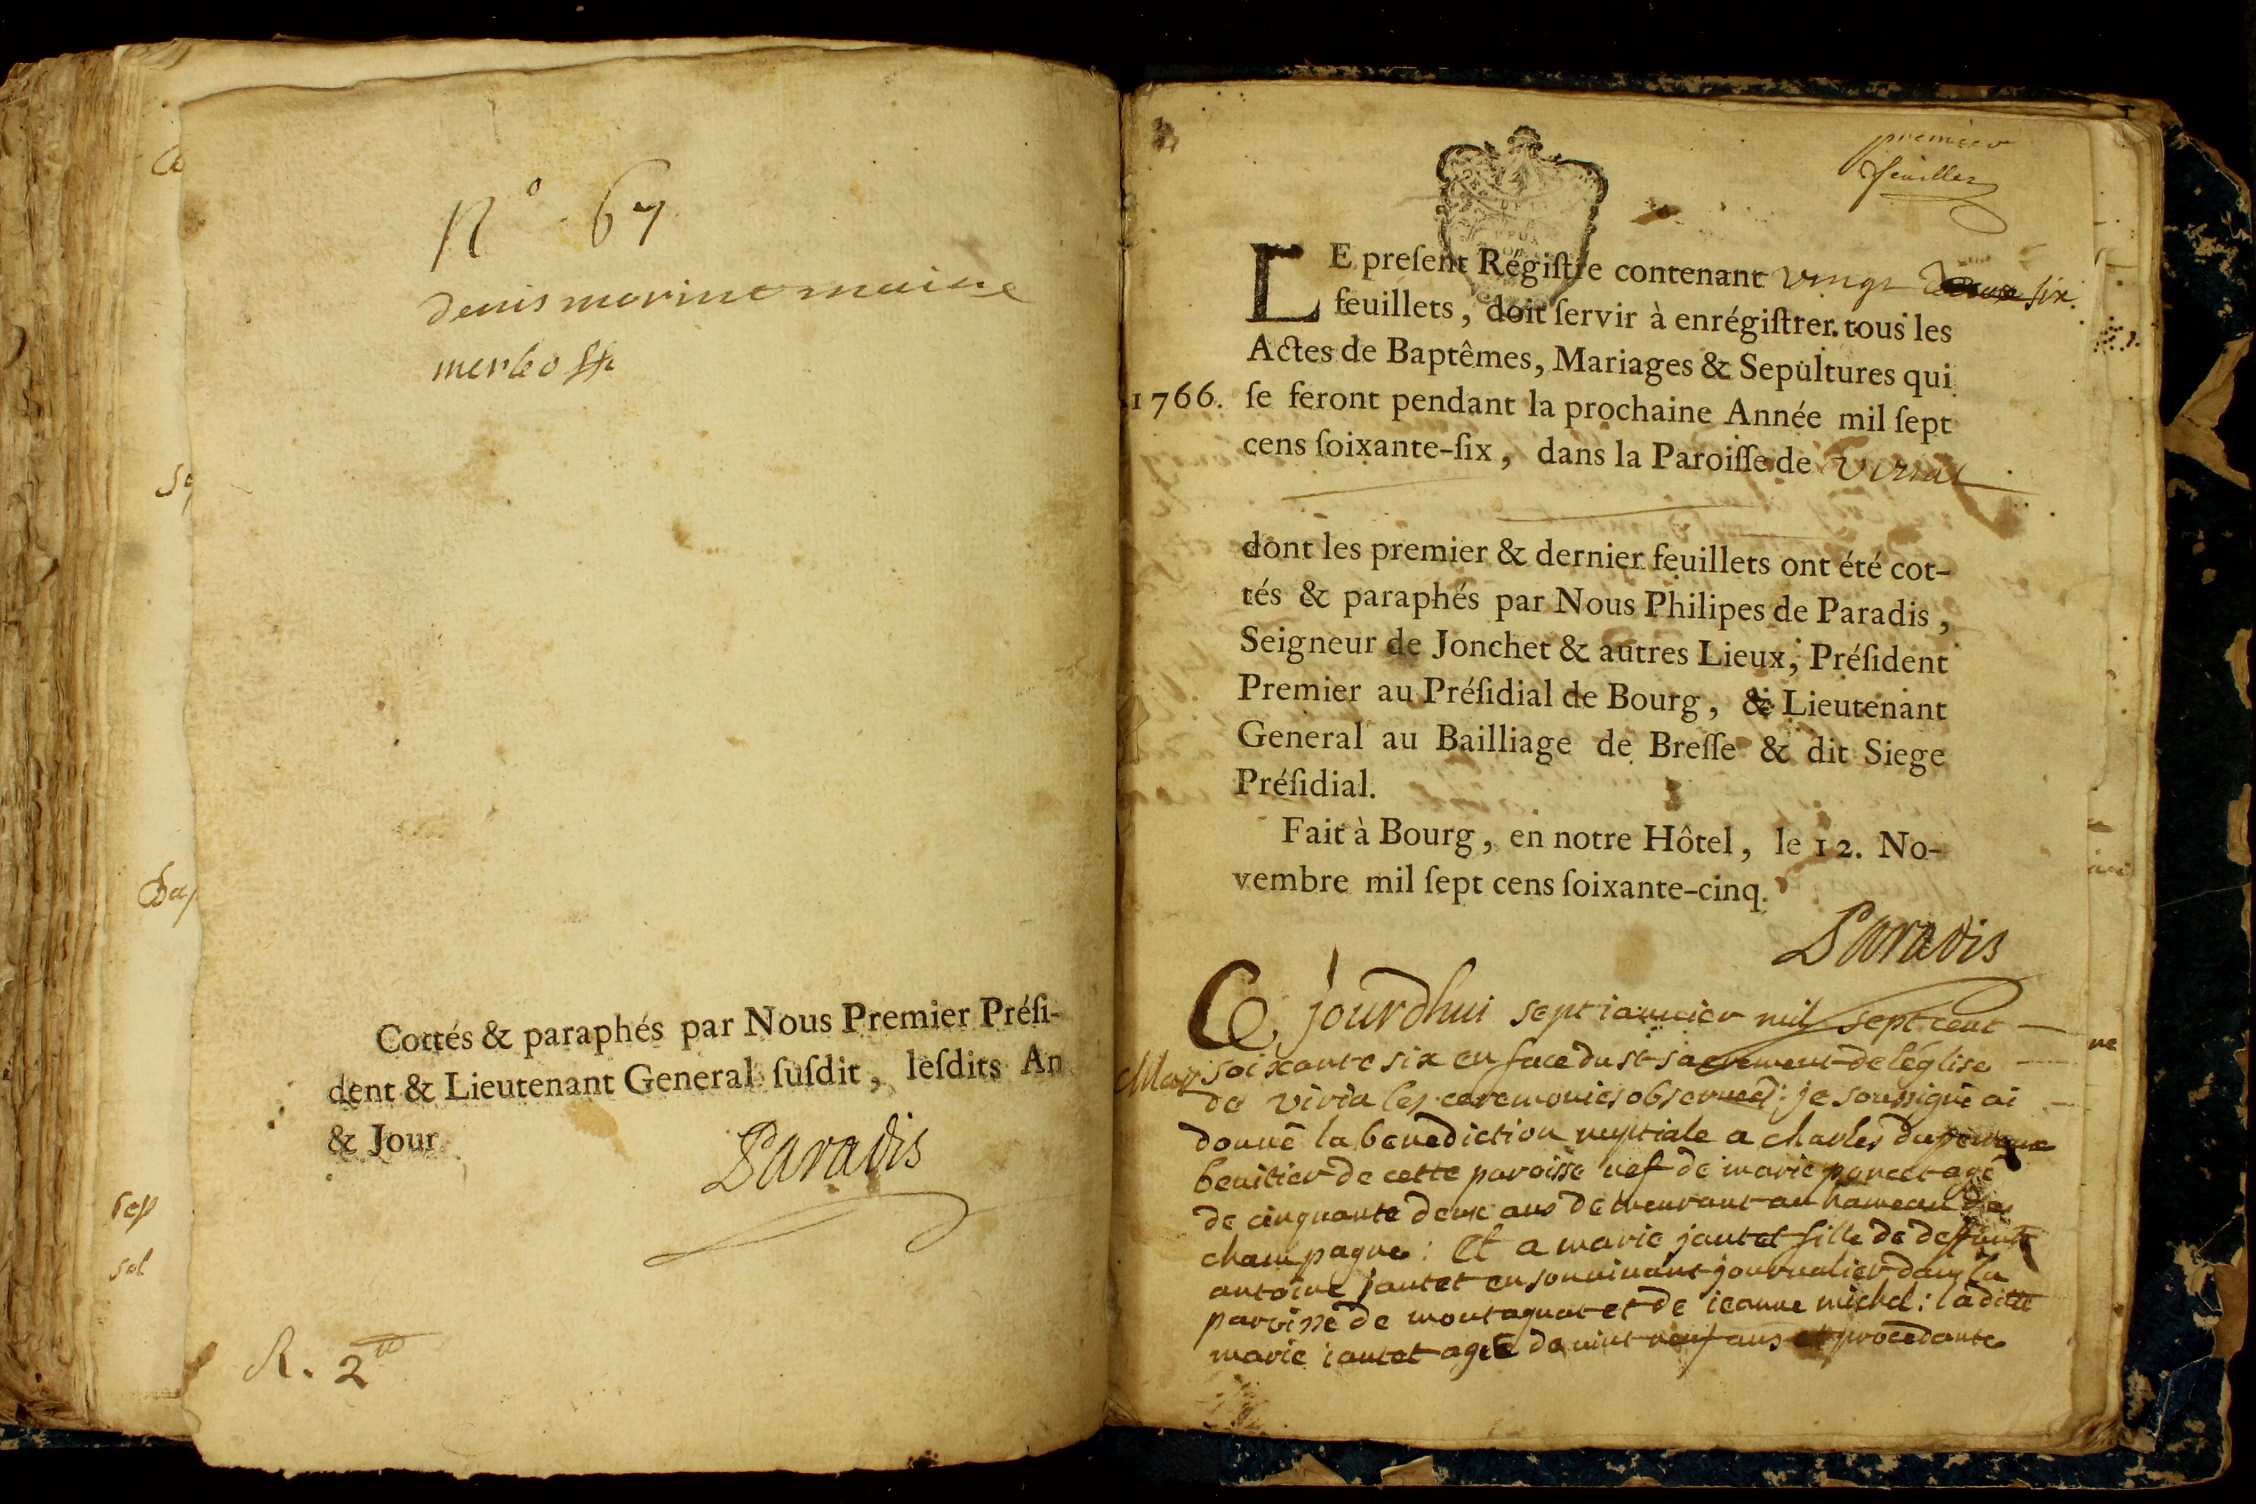 N° 67
denis morin
Cottés & paraphés par Nous Premier Préſi-
dent & Lieutenant General ſuſdit, leſdits An
& Jour
Paradis
R. 2
premier
feuillet
LE preſent Régiſtre contenant vingt six
feuillets, doit ſervir à enrégiſtrer tous les
Actes de Baptêmes, Mariages & Sepultures qui
1766. ſe feront pendant la prochaine Année mil ſept
cens ſoixante-ſix, dans la Paroiſſe de Viriat
dont les premier & dernier feuillets ont été cot-
tés & paraphés par Nous Philipes de Paradis,
Seigneur de Jonchet & autres Lieux, Préſident
Premier au Préſidial de Bourg, & Lieutenant
General au Bailliage de Breſſe & dit Siege
Préſidial.
Fait à Bourg, en notre Hôtel, le 12. No-
vembre mil ſept cens ſoixante-cinq.
Paradis
Ce jourdhui sept ianvier mil sept cent
Mar soixante six en face du st sacrement de léglise
de viria les ceremonies observees: je soussigné ai
donné la benediction nuptiale a charles
de cette paroisse vef de marie poncet agé
de cinquante deux ans demeurant au hameau de
champagne: Et a marie jantet fille de deffunt
antoine jantet en son vivant journalier dans la
paroisse de montagnat et de ieanne michel: la ditte
marie iantet agée de vint neuf ans et procedante